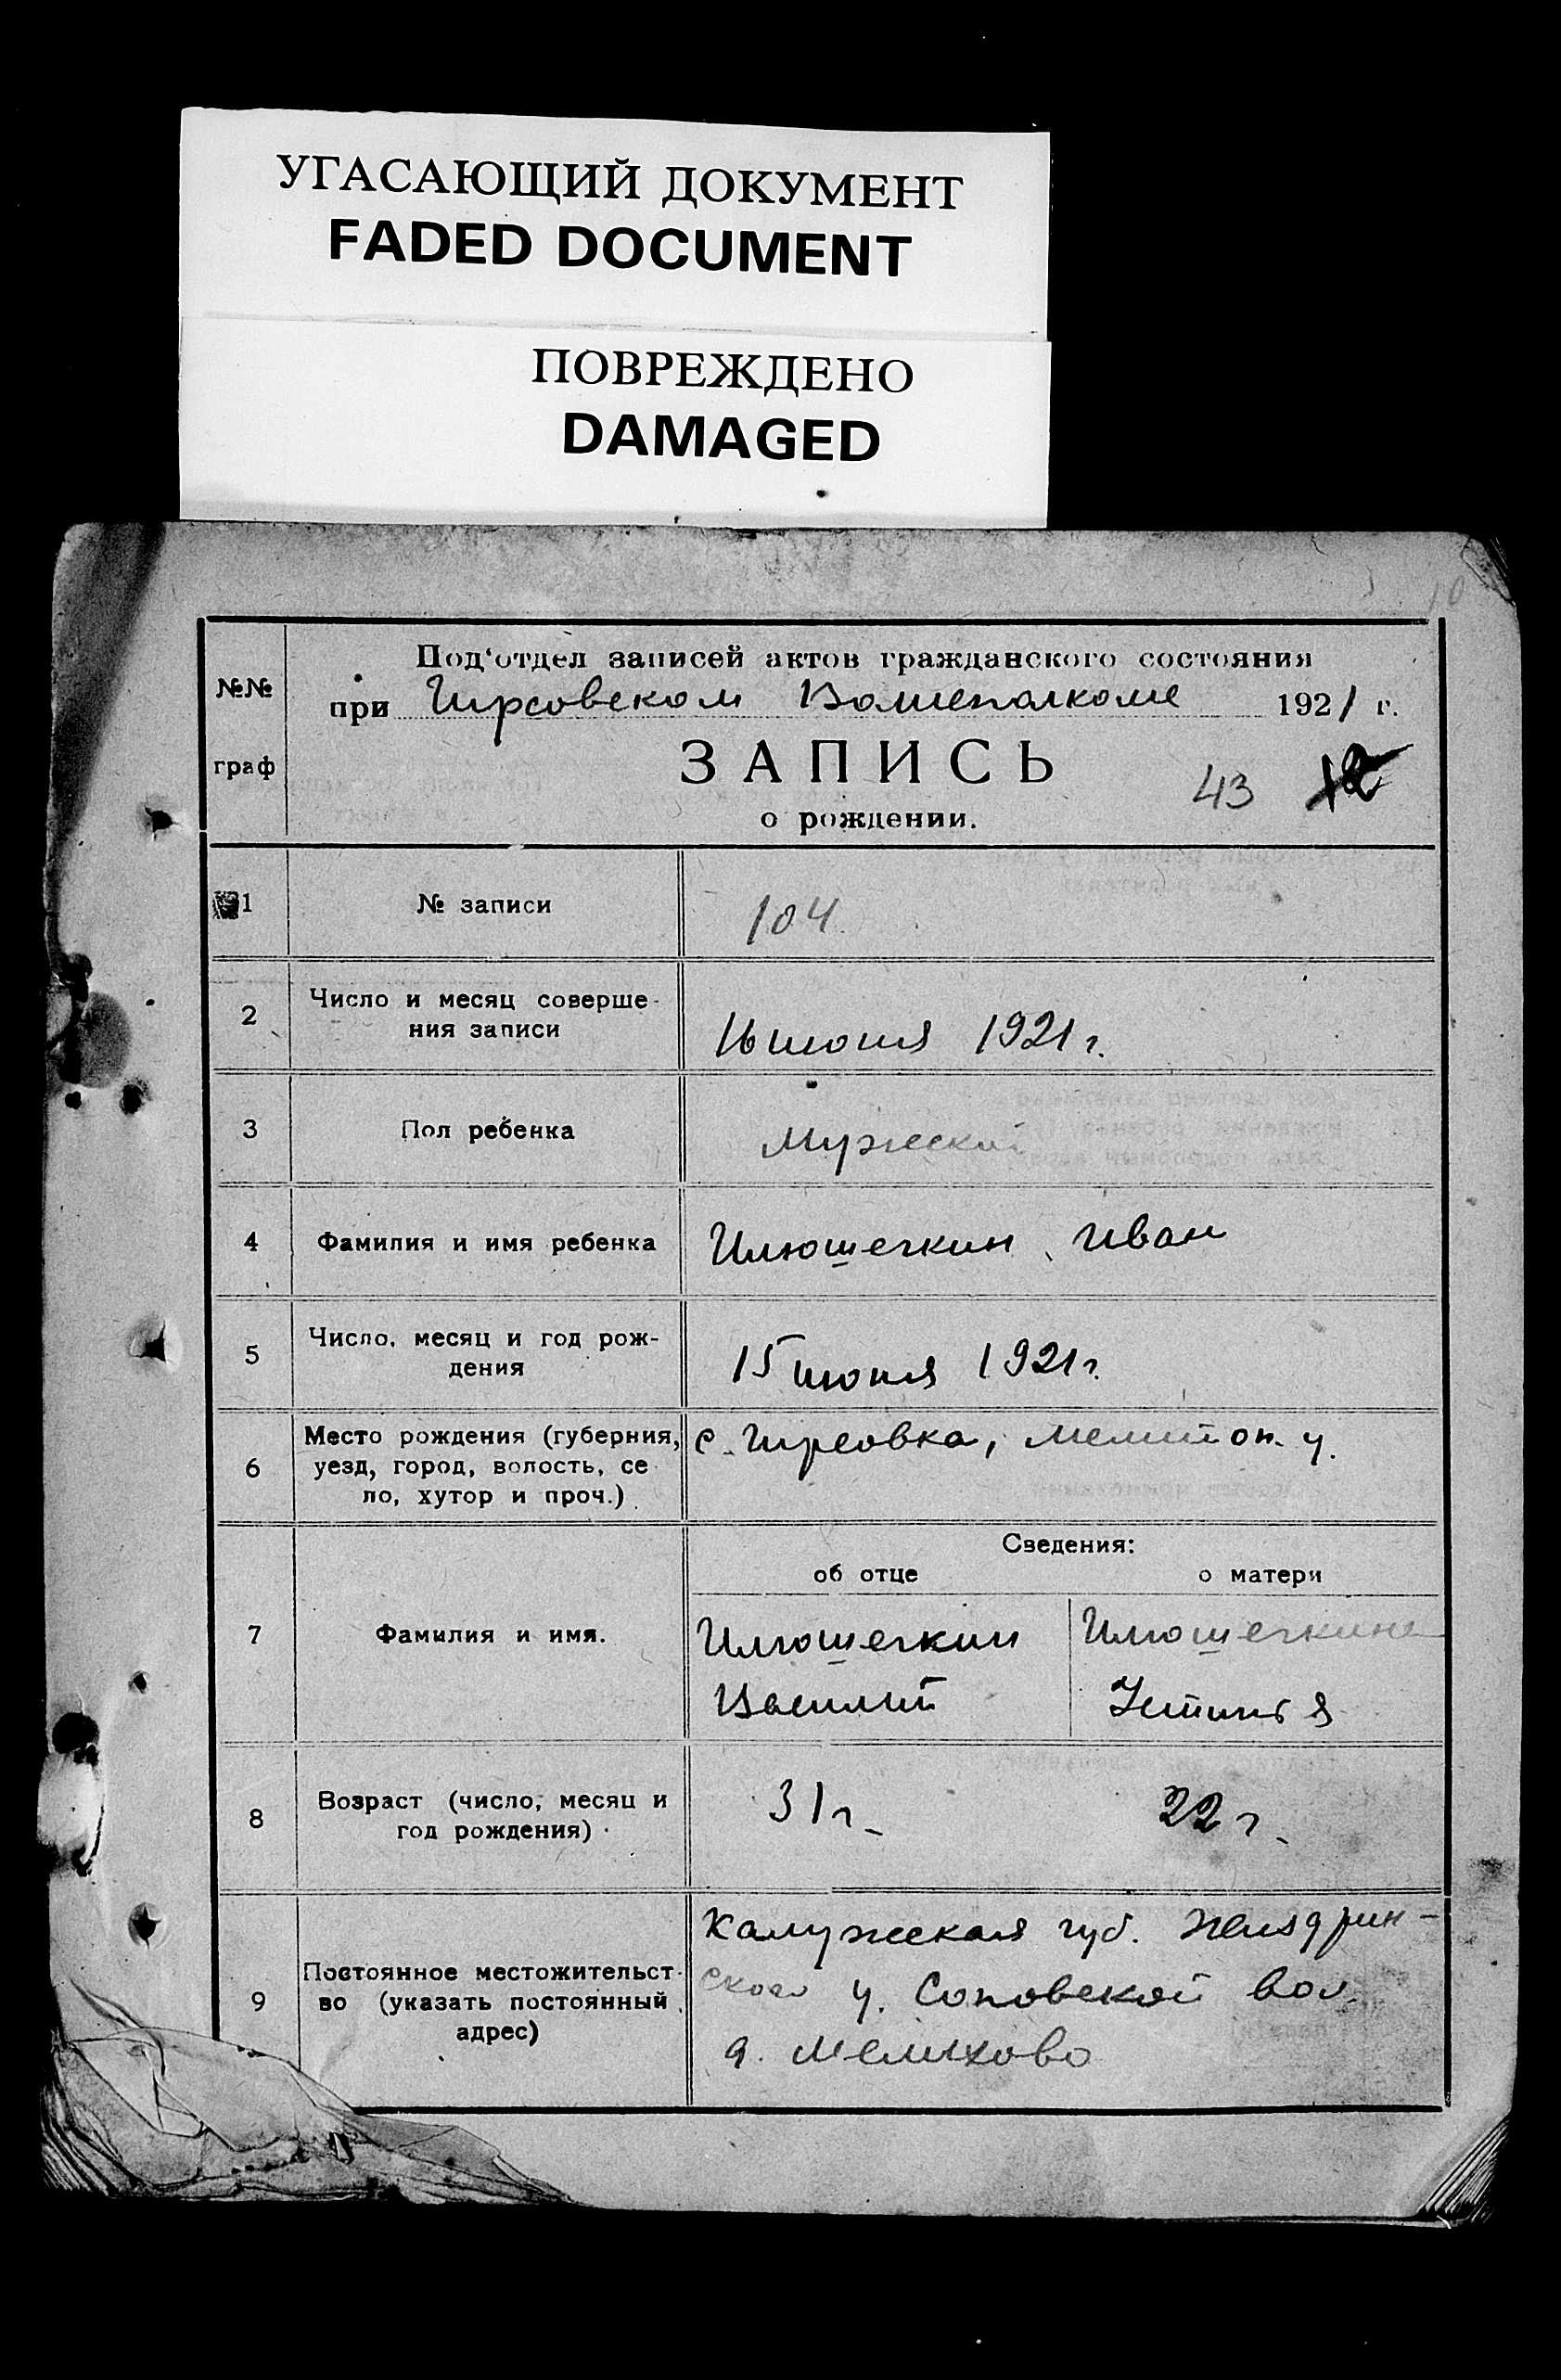 УГАСАЮЩИЙ ДОКУМЕНТ
FADED DOCUMENT
ПОВРЕЖДЕНО
DAMAGED
10
№№ граф
Под'отдел записей актов гражданского состояния
при Гирсовском Волисполкоме 1921 г.
ЗАПИСЬ
43 12
о рождении.
1 № записи 104
2 Число и месяц соверше-
ния записи 16 июня 1921 г.
3 Пол ребенка мужской
4 Фамилия и имя ребенка Илюшечкин Иван
5 Число, месяц и год рож-
дения 15 июня 1921 г.
6 Место рождения (губерния, с. Гирсовка, Мелитоп. у.
уезд, город, волость, се
ло, хутор и проч.)
Сведения:
об отце о матери
7 Фамилия и имя. Илюшечкин Илюшечкина
Василий Устинья
8 Возраст (число, месяц и 31 г. 22 г.
год рождения)
Калужская губ. Жиздрин-
9 Постоянное местожительст-
во (указать постоянный
адрес)
ского у. вол.
д. Мелихово